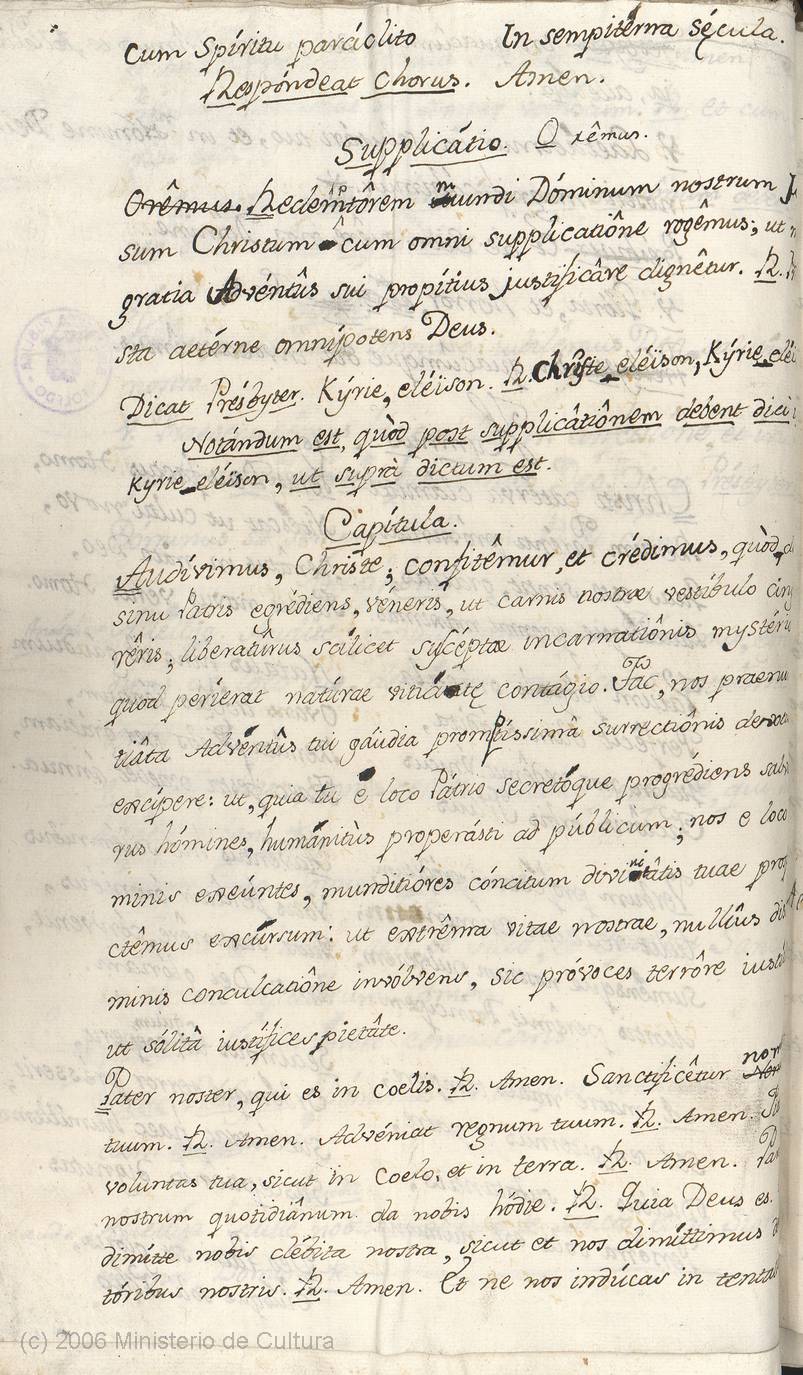 Cum Spíritu paráclito In sempitérna sécula.
Respóndeat Chorus. Amen.
Supplicátio. Orêmus.
Orêmus. Redemptôrem mundi Dóminum nostrum J
sum Christum cum omni supplicatiône rogêmus; ut
gratia Advéntûs sui propítius justificâre dignêtur. R.
sta aetérne omnípotens Deus.
Dicat Présbyter. Kýrie, eléïson. R. Christe eléïson, Kýrie eléi
Notándum est, quòd post supplicâtiônem debent dici
Kyrie eléïson, ut suprà dictum est.
Capítula.
Audívimus, Christe; confitêmur, et crédimus, quòd d
sinu Patris egrédiens, véneris, ut carnis nostræ vestíbulo cing
rêris; liberatûrus scílicet suscéptæ incarnatiônis mystéri
quod períerat naturae vitiánte contágio. Fac, nos praenu
tiâta Advéntûs tui gáudia promptíssimâ surrectiônis devot
excípere: ut, quia tu e loco Pátrio secretóque progrédiens salv
rus hómines, humánitùs properásti ad públicum; nos e loco
minis exeúntes, munditióres cóncitum divinitâtis tuae prosp
ctêmus excúrsum: ut extrêma vitae nostrae, nullîus dis
minis conculcatiône invólvens, sic próvoces terrôre iustí
ut sólitâ iustífices pietâte.
Pater noster, qui es in coelis. R. Amen. Sanctificêtur nom
tuum. R. Amen. Advéniat regnum tuum. R. Amen.
voluntas tua, sicut in Coelo, et in terra. R. Amen. Pan
nostrum quotidiânum da nobis hódie. R. Quia Deus es.
dimítte nobis débita nostra, sicut et nos dimíttimus
tóribus nostris. R. Amen. Et ne nos indúcas in tenta
(c) 2006 Ministerio de Cultura